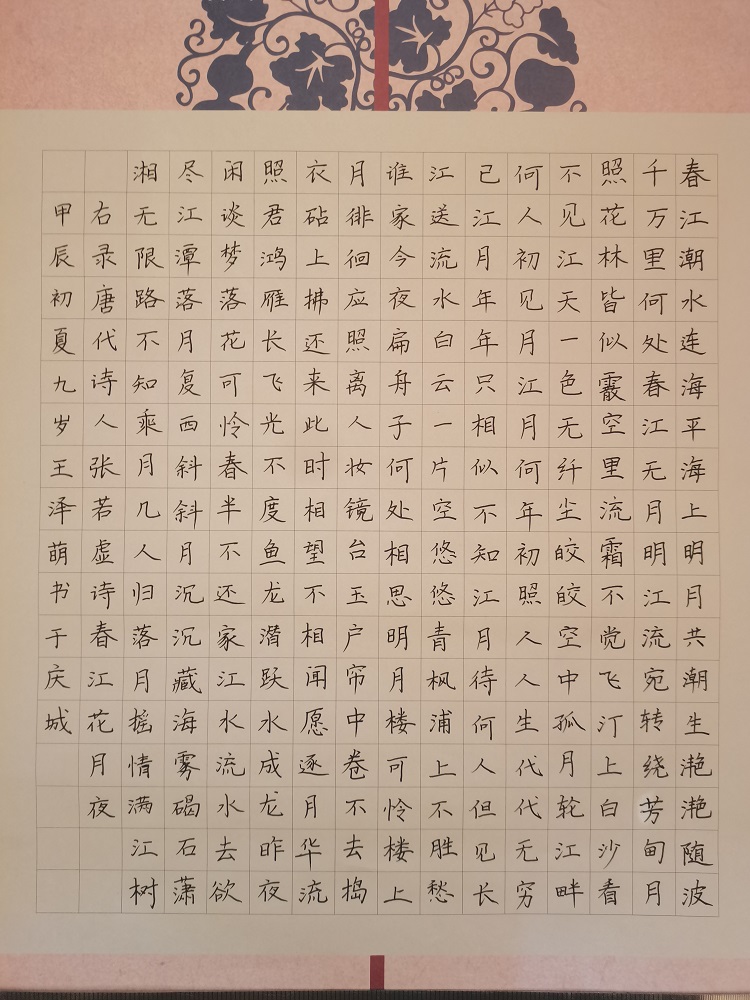 春江潮水连海平海上明月共潮生滟滟随波
千万里何处春江无月明江流宛转绕芳甸月
照花林皆似霰空里流霜不觉飞汀上白沙看
不见江天一色无纤尘皎皎空中孤月轮江畔
何人初见月江月何年初照人人生代代无穷
已江月年年只相似不知江月待何人但见长
江送流水白云一片空悠悠青枫浦上不胜愁
谁家今夜扁舟子何处相思明月楼可怜楼上
月徘徊应照离人妆镜台玉户帘中卷不去捣
衣砧上拂还来此时相望不相闻愿逐月华流
照君鸿雁长飞光不度鱼龙潜跃水成龙昨夜
闲谈梦落花可怜春半不还家江水流水去欲
尽江潭落月复西斜斜月沉沉藏海雾碣石潇
湘无限路不知乘月几人归落月摇情满江树
右录唐代诗人张若虚诗春江花月夜
甲辰初夏九岁王泽萌书于庆城